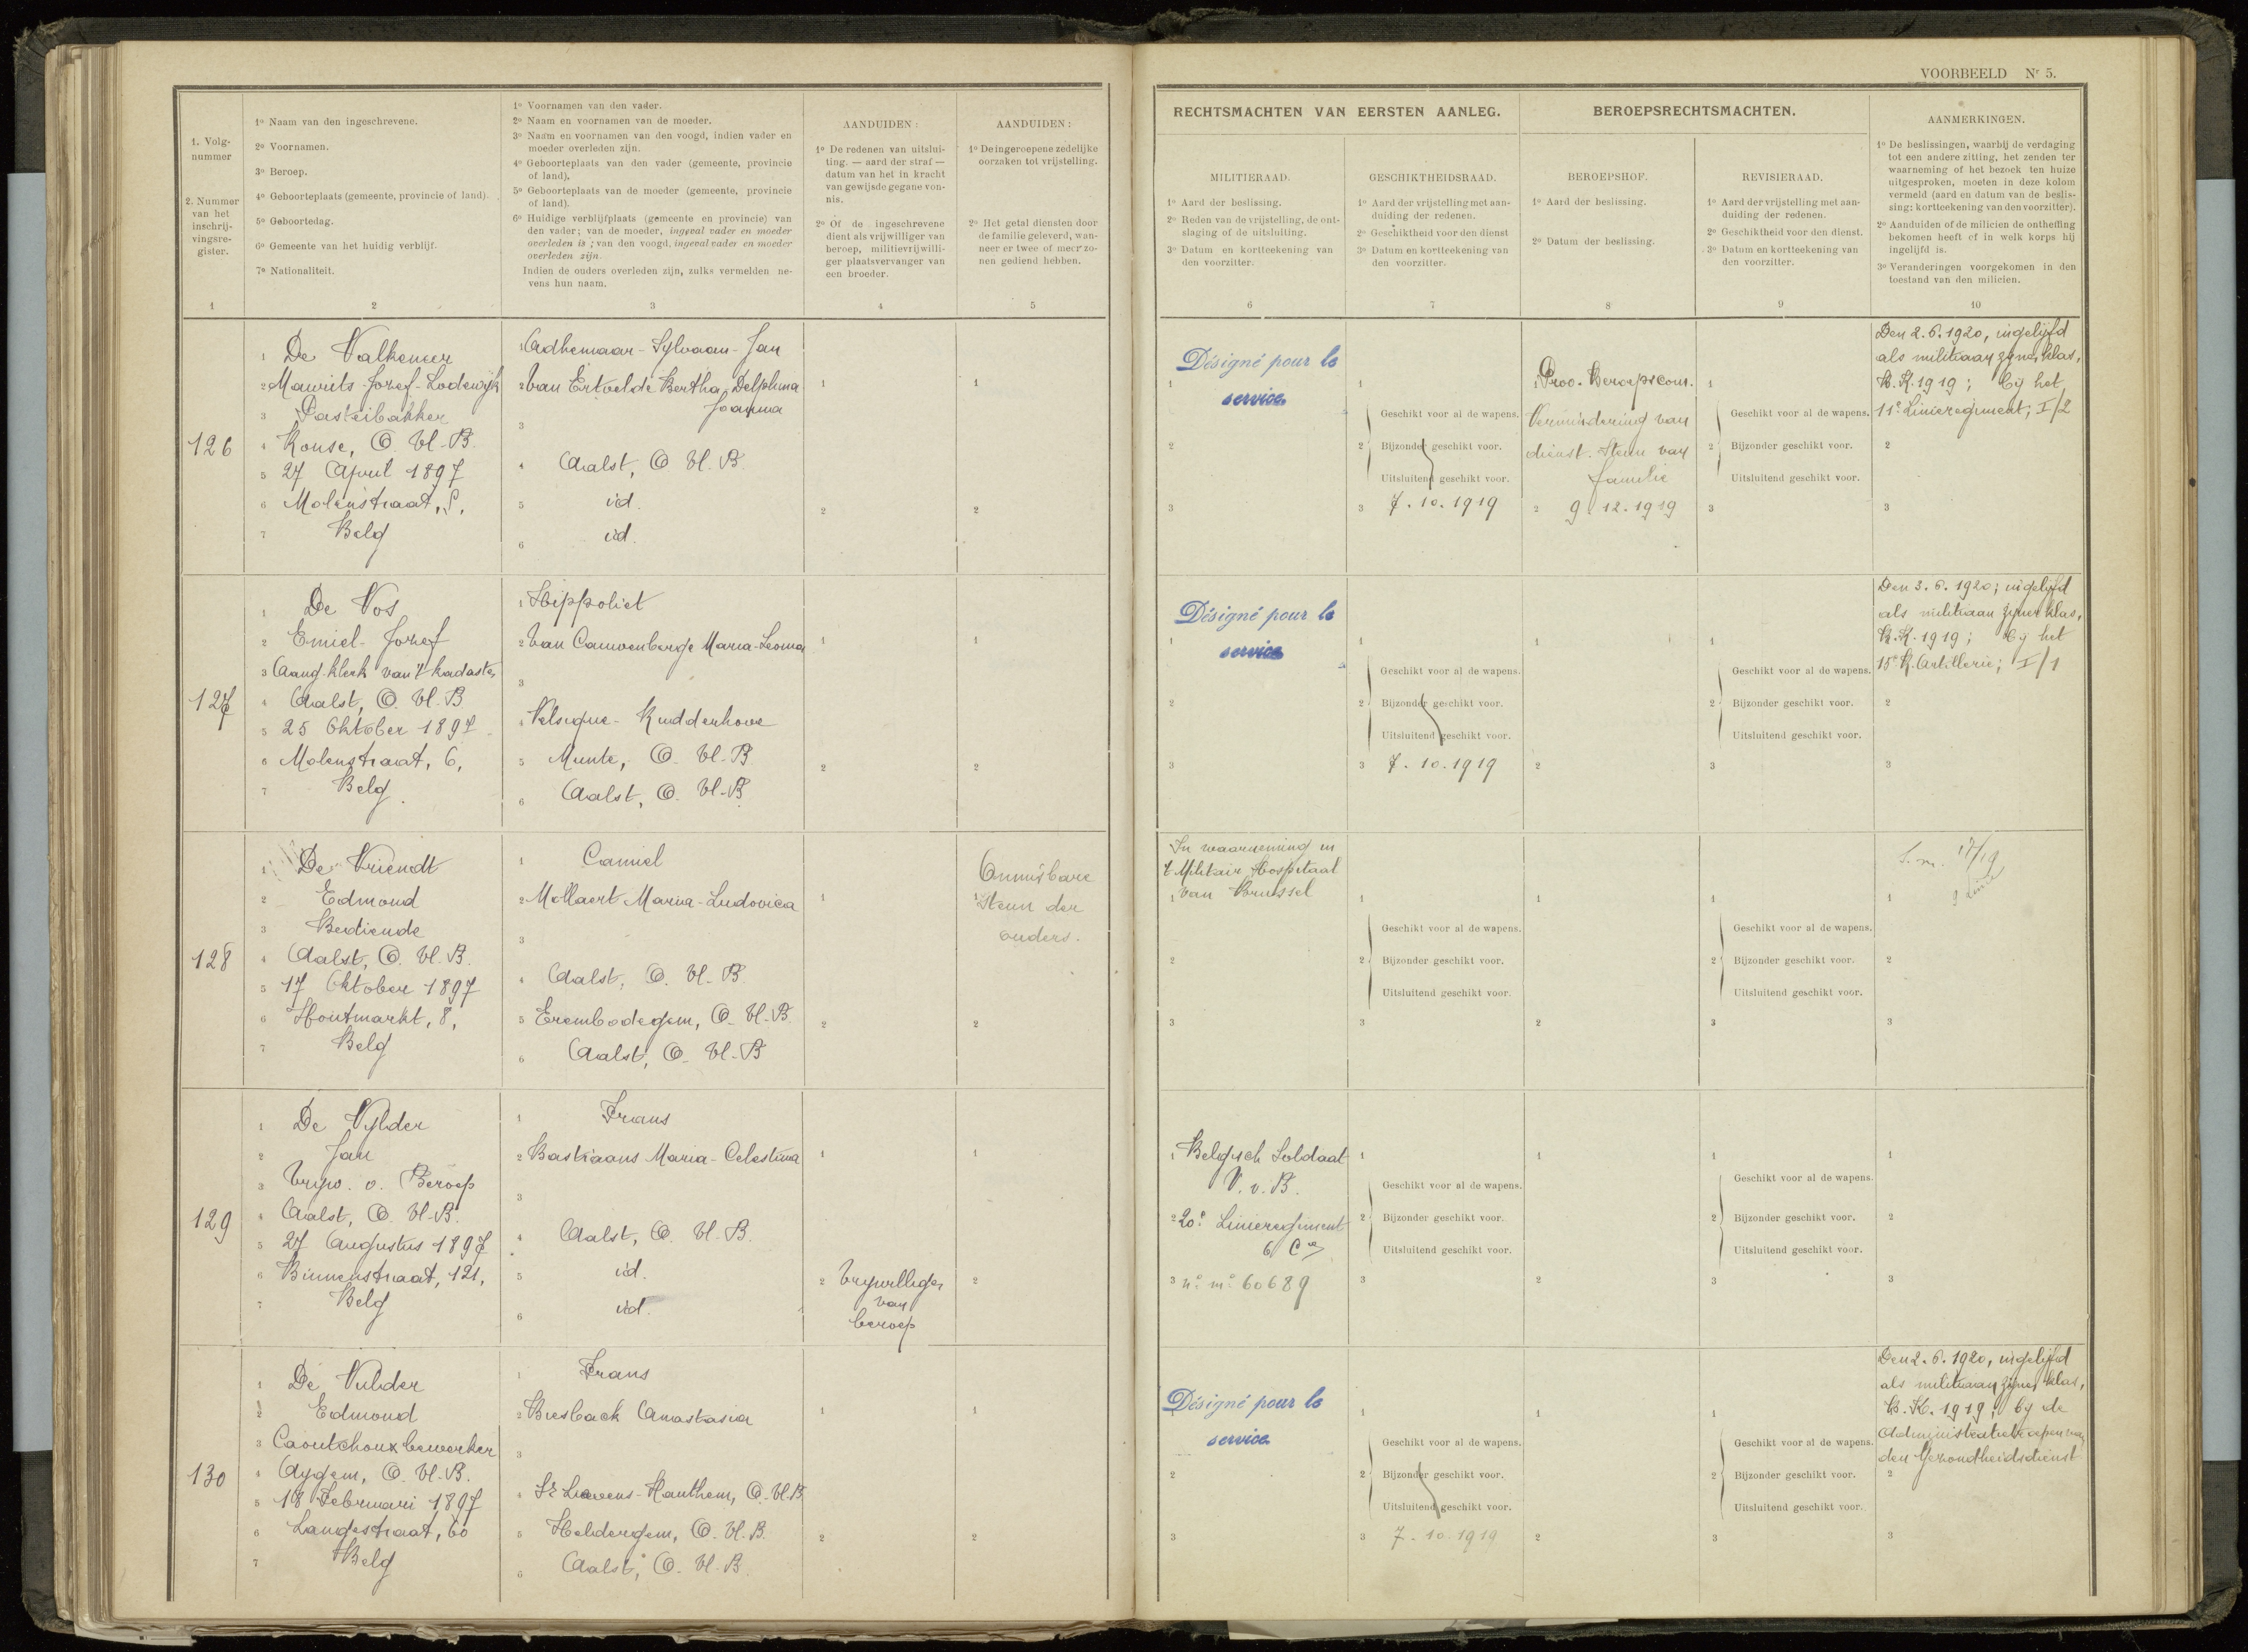 VOORBEELD Nr 5.
1. Volg-
nummer
2. Nummer
van het
inschrij-
vingsre-
gister.
1
1º Naam van den ingeschrevene.
2º Voornamen.
3º Beroep.
4º Geboorteplaats (gemeente, provincie of land).
5º Geboortedag.
6º Gemeente van het huidig verblijf.
7º Nationaliteit.
2
1º Voornamen van den vader.
2º Naam en voornamen van de moeder.
3º Naam en voornamen van den voogd, indien vader en
moeder overleden zijn.
4º Geboorteplaats van den vader (gemeente, provincie
of land).
5º Geboorteplaats van de moeder (gemeente, provincie
of land).
6º Huidige verblijfplaats (gemeente en provincie) van
den vader; van de moeder, ingeval vader en moeder
overleden is; van den voogd, ingeval vader en moeder
overleden zijn.
Indien de ouders overleden zijn, zulks vermelden ne-
vens hun naam.
3
AANDUIDEN:
1º De redenen van uitslui-
ting. — aard der straf —
datum van het in kracht
van gewijsde gegane von-
nis.
2º Of de ingeschrevene
dient als vrijwilliger van
beroep, militievrijwilli-
ger plaatsvervanger van
een broeder.
4
AANDUIDEN:
1º De ingeroepene zedelijke
oorzaken tot vrijstelling.
2º Het getal diensten door
de familie geleverd, wan-
neer er twee of meer zo-
nen gediend hebben.
5
RECHTSMACHTEN VAN EERSTEN AANLEG.
MILITIERAAD.
1º Aard der beslissing.
2º Reden van de vrijstelling, de ont-
slaging of de uitsluiting.
3º Datum en kortteekening van
den voorzitter.
6
GESCHIKTHEIDSRAAD.
1º Aard der vrijstelling met aan-
duiding der redenen.
2º Geschiktheid voor den dienst
3º Datum en kortteekening van
den voorzitter.
7
BEROEPSRECHTSMACHTEN.
BEROEPSHOF.
1º Aard der beslissing.
2º Datum der beslissing.
8
REVISIERAAD.
1º Aard der vrijstelling met aan-
duiding der redenen.
2º Geschiktheid voor den dienst.
3º Datum en kortteekening van
den voorzitter.
9
AANMERKINGEN.
1º De beslissingen, waarbij de verdaging
tot een andere zitting, het zenden ter
waarneming of het bezoek ten huize
uitgesproken, moeten in deze kolom
vermeld (aard en datum van de beslis-
sing: kortteekening van den voorzitter).
2º Aanduiden of de milicien de ontheffing
bekomen heeft of in welk korps hij
ingelijfd is.
3º Veranderingen voorgekomen in den
toestand van den milicien.
10
126
1 De Valkeneer
2 Maurits-Jozef-Lodewijk
3 Pasteibakker
4 Ronse, O. Vl-B.
5 27 April 1897
6 Molenstraat,
7 Belg
1 Adhemaar-Sylvaan-Jan
2 Van Ertvelde Bertha-Delphina
Joanna
3
4 Aalst, O Vl. B.
5 id.
6 id.
1
2
1
2
1 Désigné pour le
service
2
3
1
Geschikt voor al de wapens.
2 Bijzonder geschikt voor.
Uitsluitend geschikt voor.
3 7.10.1919
1 Prov. Beroepscom.
Vermindering van
dienst. Steun van
familie
2 9.12.1919
1
Geschikt voor al de wapens.
2 Bijzonder geschikt voor.
Uitsluitend geschikt voor.
3
Den 2.6.1920, ingelijfd
als militiaan zijner klas,
B.K.1919; bij het
11e Linieregiment, I/2
2
3
127
1 De Vos
2 Emiel-Jozef
3 Aang. klerk van 't kadaster
4 Aalst, O. Vl-B
5 25 Oktober 1897.
6 Molenstraat, 6,
7 Belg.
1 Hippoliet
2 Van Cauwenberge Maria-Leonia
3
4 Velsique-Ruddershove
5 Munte, O. Vl-B
6 Aalst, O. Vl-B
1
2
1
2
1 Désigné pour le
service
2
3
1
Geschikt voor al de wapens.
2 Bijzonder geschikt voor.
Uitsluitend geschikt voor.
3 7.10.1919
1
2
1
Geschikt voor al de wapens.
2 Bijzonder geschikt voor.
Uitsluitend geschikt voor.
3
Den 3.6.1920; ingelijfd
als militiaan zijner klas,
B.K.1919; bij het
15e R. Artillerie; I/1
2
3
128
1 De Vriendt
2 Edmond
3 Bediende
4 Aalst, O. Vl.B.
5 17 Oktober 1897
6 Houtmarkt, 8,
7 Belg
1 Camiel
2 Mollaert Maria-Ludovica
3
4 Aalst, O. Vl-B
5 Erembodegem, O-Vl-B.
6 Aalst, O-Vl-B
1
2
Onmisbare
1 Steun der
ouders.
2
In waarneming in
't Militair Hospitaal
1 van Brussel
2
3
1
Geschikt voor al de wapens.
2 Bijzonder geschikt voor.
Uitsluitend geschikt voor.
3
1
2
1
Geschikt voor al de wapens.
2 Bijzonder geschikt voor.
Uitsluitend geschikt voor.
3
S.m. 17/19
1 9 Linie
2
3
129
1 De Vylder
2 Jan
3 Vrijw. v. Beroep
4 Aalst, O. Vl-B.
5 27 Augustus 1897
6 Binnenstraat, 121,
7 Belg
1 Frans
2 Bastiaans Maria-Celestina
3
4 Aalst, O. Vl-B.
5 id.
6 id.
1
2 Vrijwilliger
van
beroep
1
2
1 Belgisch Soldaat
V.v.B.
2 20e Linieregiment
6 Cie
3 nº mº 60689
1
Geschikt voor al de wapens.
2 Bijzonder geschikt voor.
Uitsluitend geschikt voor.
3
1
2
1
Geschikt voor al de wapens.
2 Bijzonder geschikt voor.
Uitsluitend geschikt voor.
3
1
2
3
130
1 De Vulder
2 Edmond
3 Caoutchoux bewerker
4 Aygem, O. Vl-B.
5 18 Februari 1897
6 Langestraat, 60
7 Belg
1 Frans
2 Biesback Anastasia
3
4 St Lievens-Hauthem, O-Vl.B
5 Heldergem, O. Vl.B.
6 Aalst, O. Vl.B.
1
2
1
2
Désigné pour le
service
2
3
1
Geschikt voor al de wapens.
2 Bijzonder geschikt voor.
Uitsluitend geschikt voor.
3 7.10.1919
1
2
1
Geschikt voor al de wapens.
2 Bijzonder geschikt voor.
Uitsluitend geschikt voor.
3
Den 2.6.1920, ingelijfd
als militiaan zijner klas,
B.K.1919, bij de
van
den Gezondheidsdienst
2
3